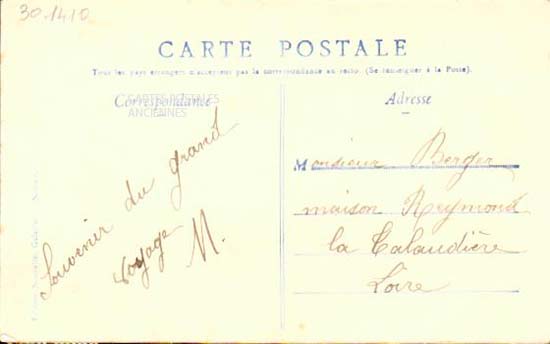 30.1410
CARTE POSTALE
Tous les pays étrangers n'acceptent pas la correspondance au recto. (Se renseigner à la Poste).
Correspondance
CARTES POSTALES
ANCIENNES
Souvenir du grand
voyage
M.
Adresse
Monsieur Berger
maison Reymond
la Talaudière
Loire